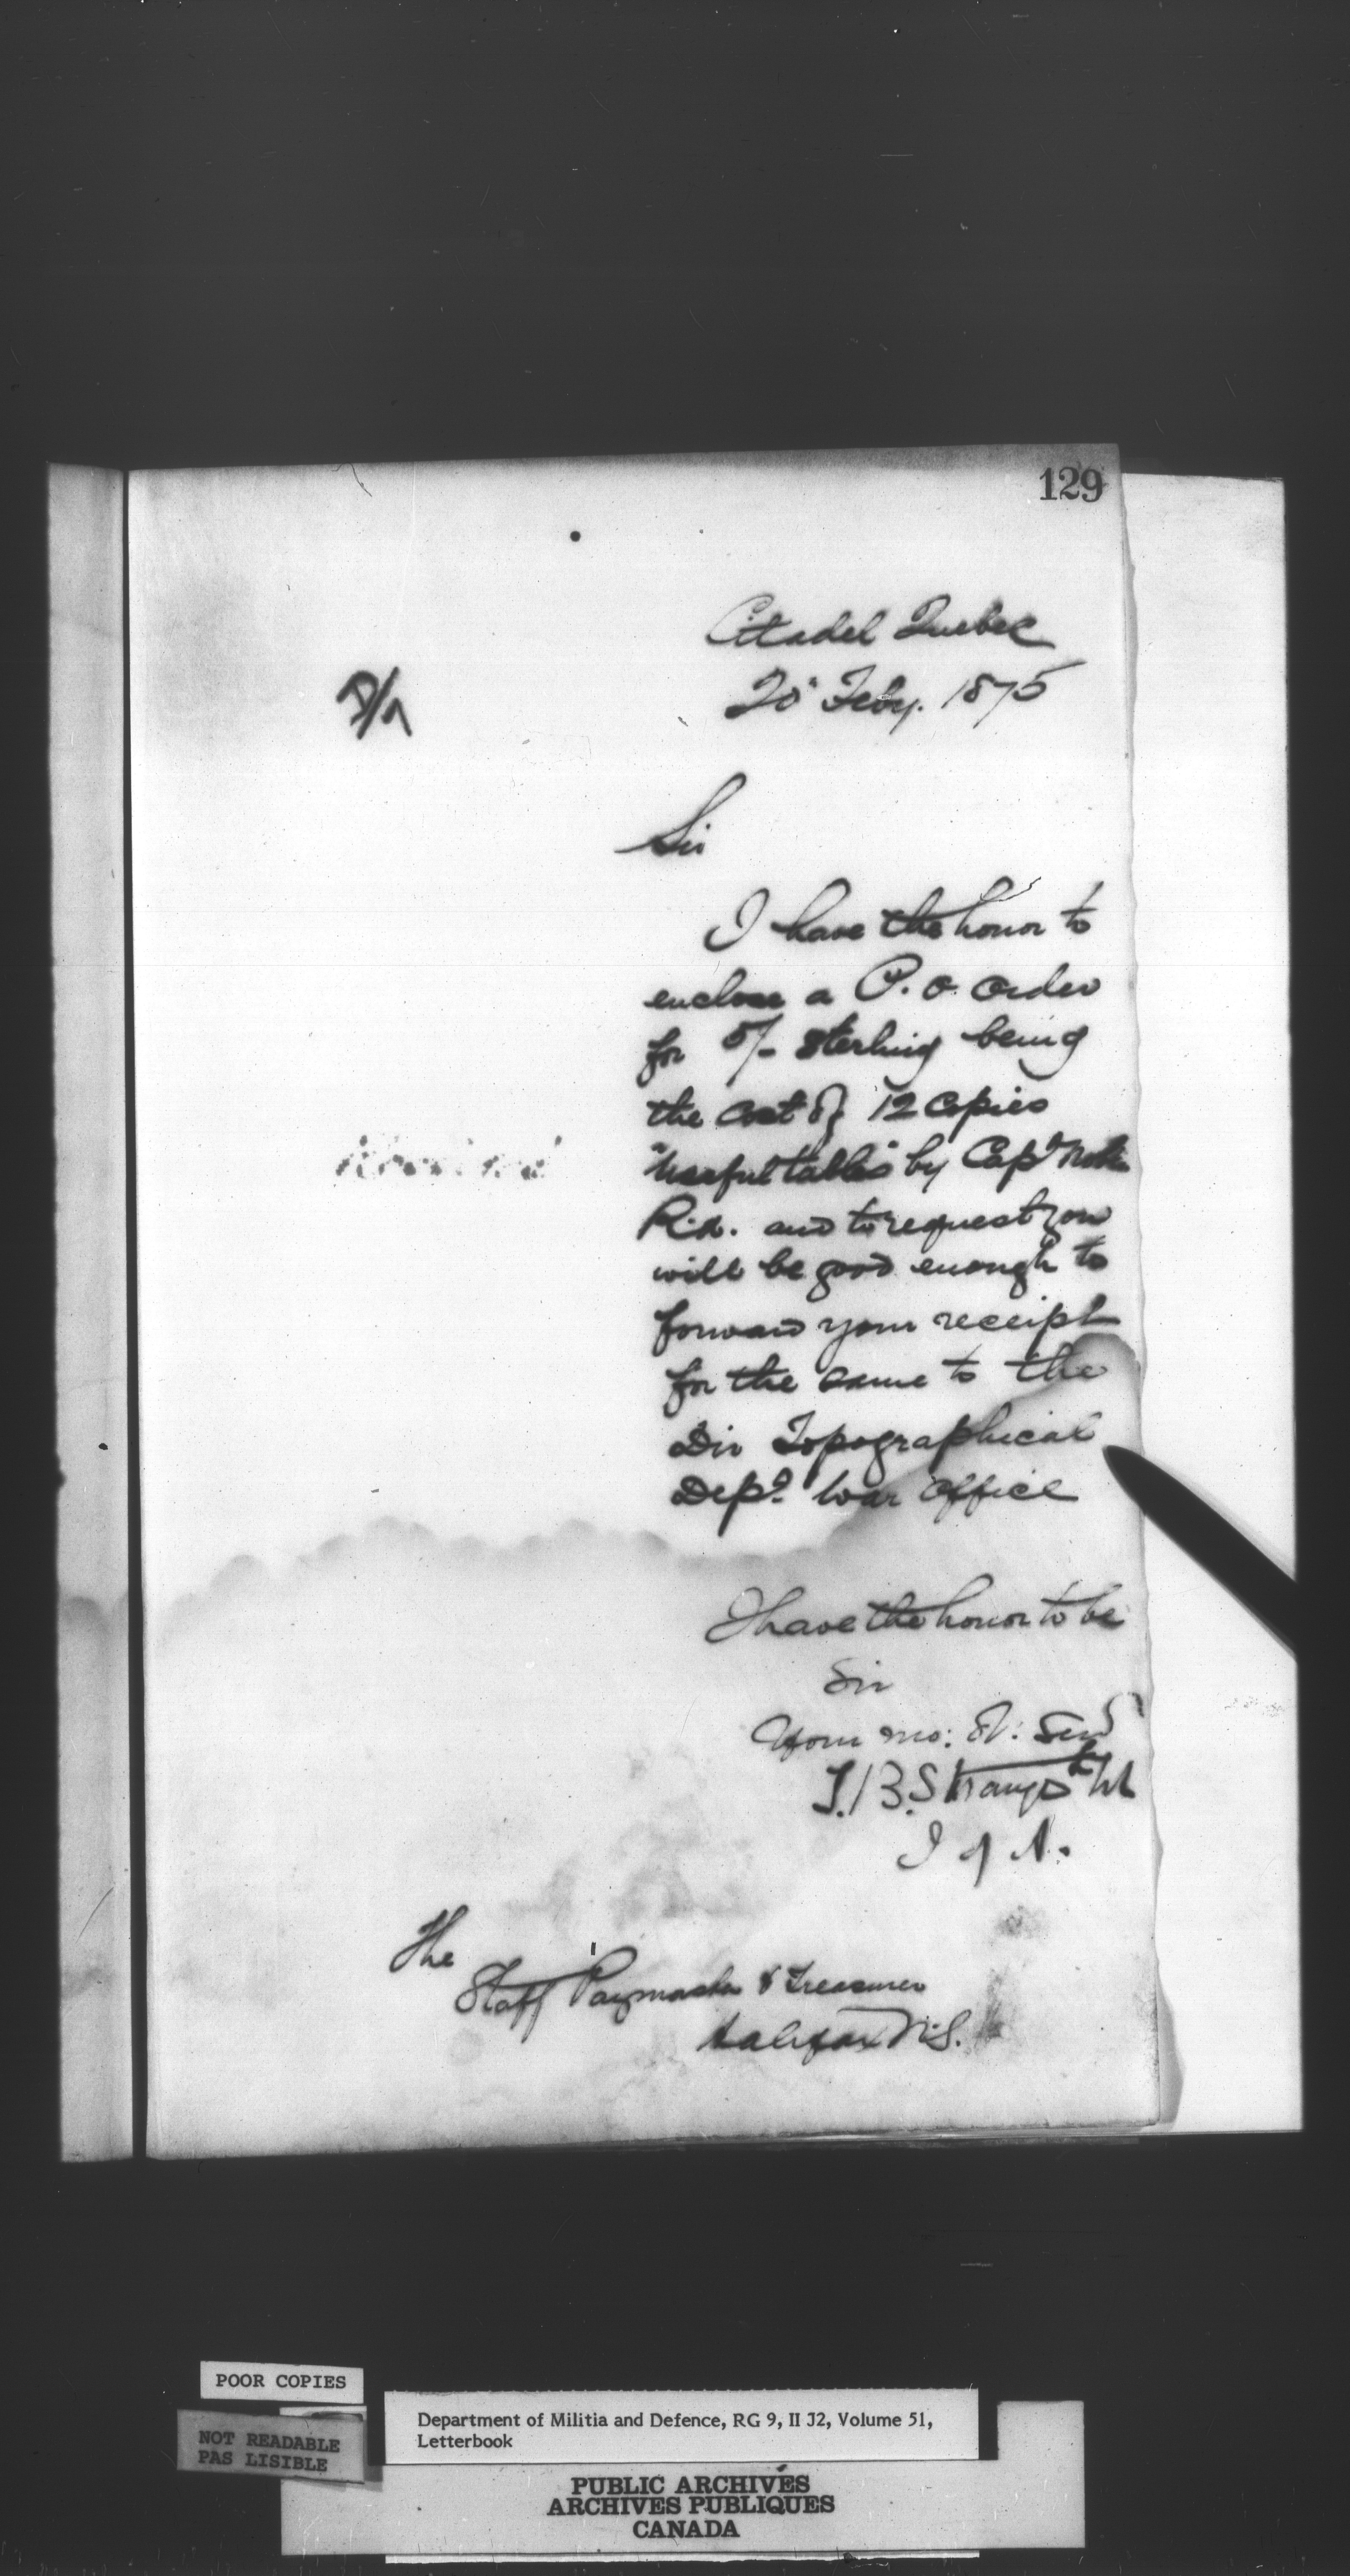 129
Citadel Quebec
20 Feby. 1875
Sir
I have the honor to
enclose a P.O. order
for 5/- sterling being
the cost of 12 copies
"useful tables" by Capt
R.A. and to request you
will be good enough to
forward your receipt
for the same to the
Dir Topographical
Dept. War Office
I have the honor to be
Sir
Your mo: O: Sert
T.B. Strange Lt
I of A.
The
Staff Paymaster & Treasurer
Halifax N.S.
POOR COPIES
NOT READABLE
PAS LISIBLE
Department of Militia and Defence, RG 9, II J2, Volume 51,
Letterbook
PUBLIC ARCHIVES
ARCHIVES PUBLIQUES
CANADA